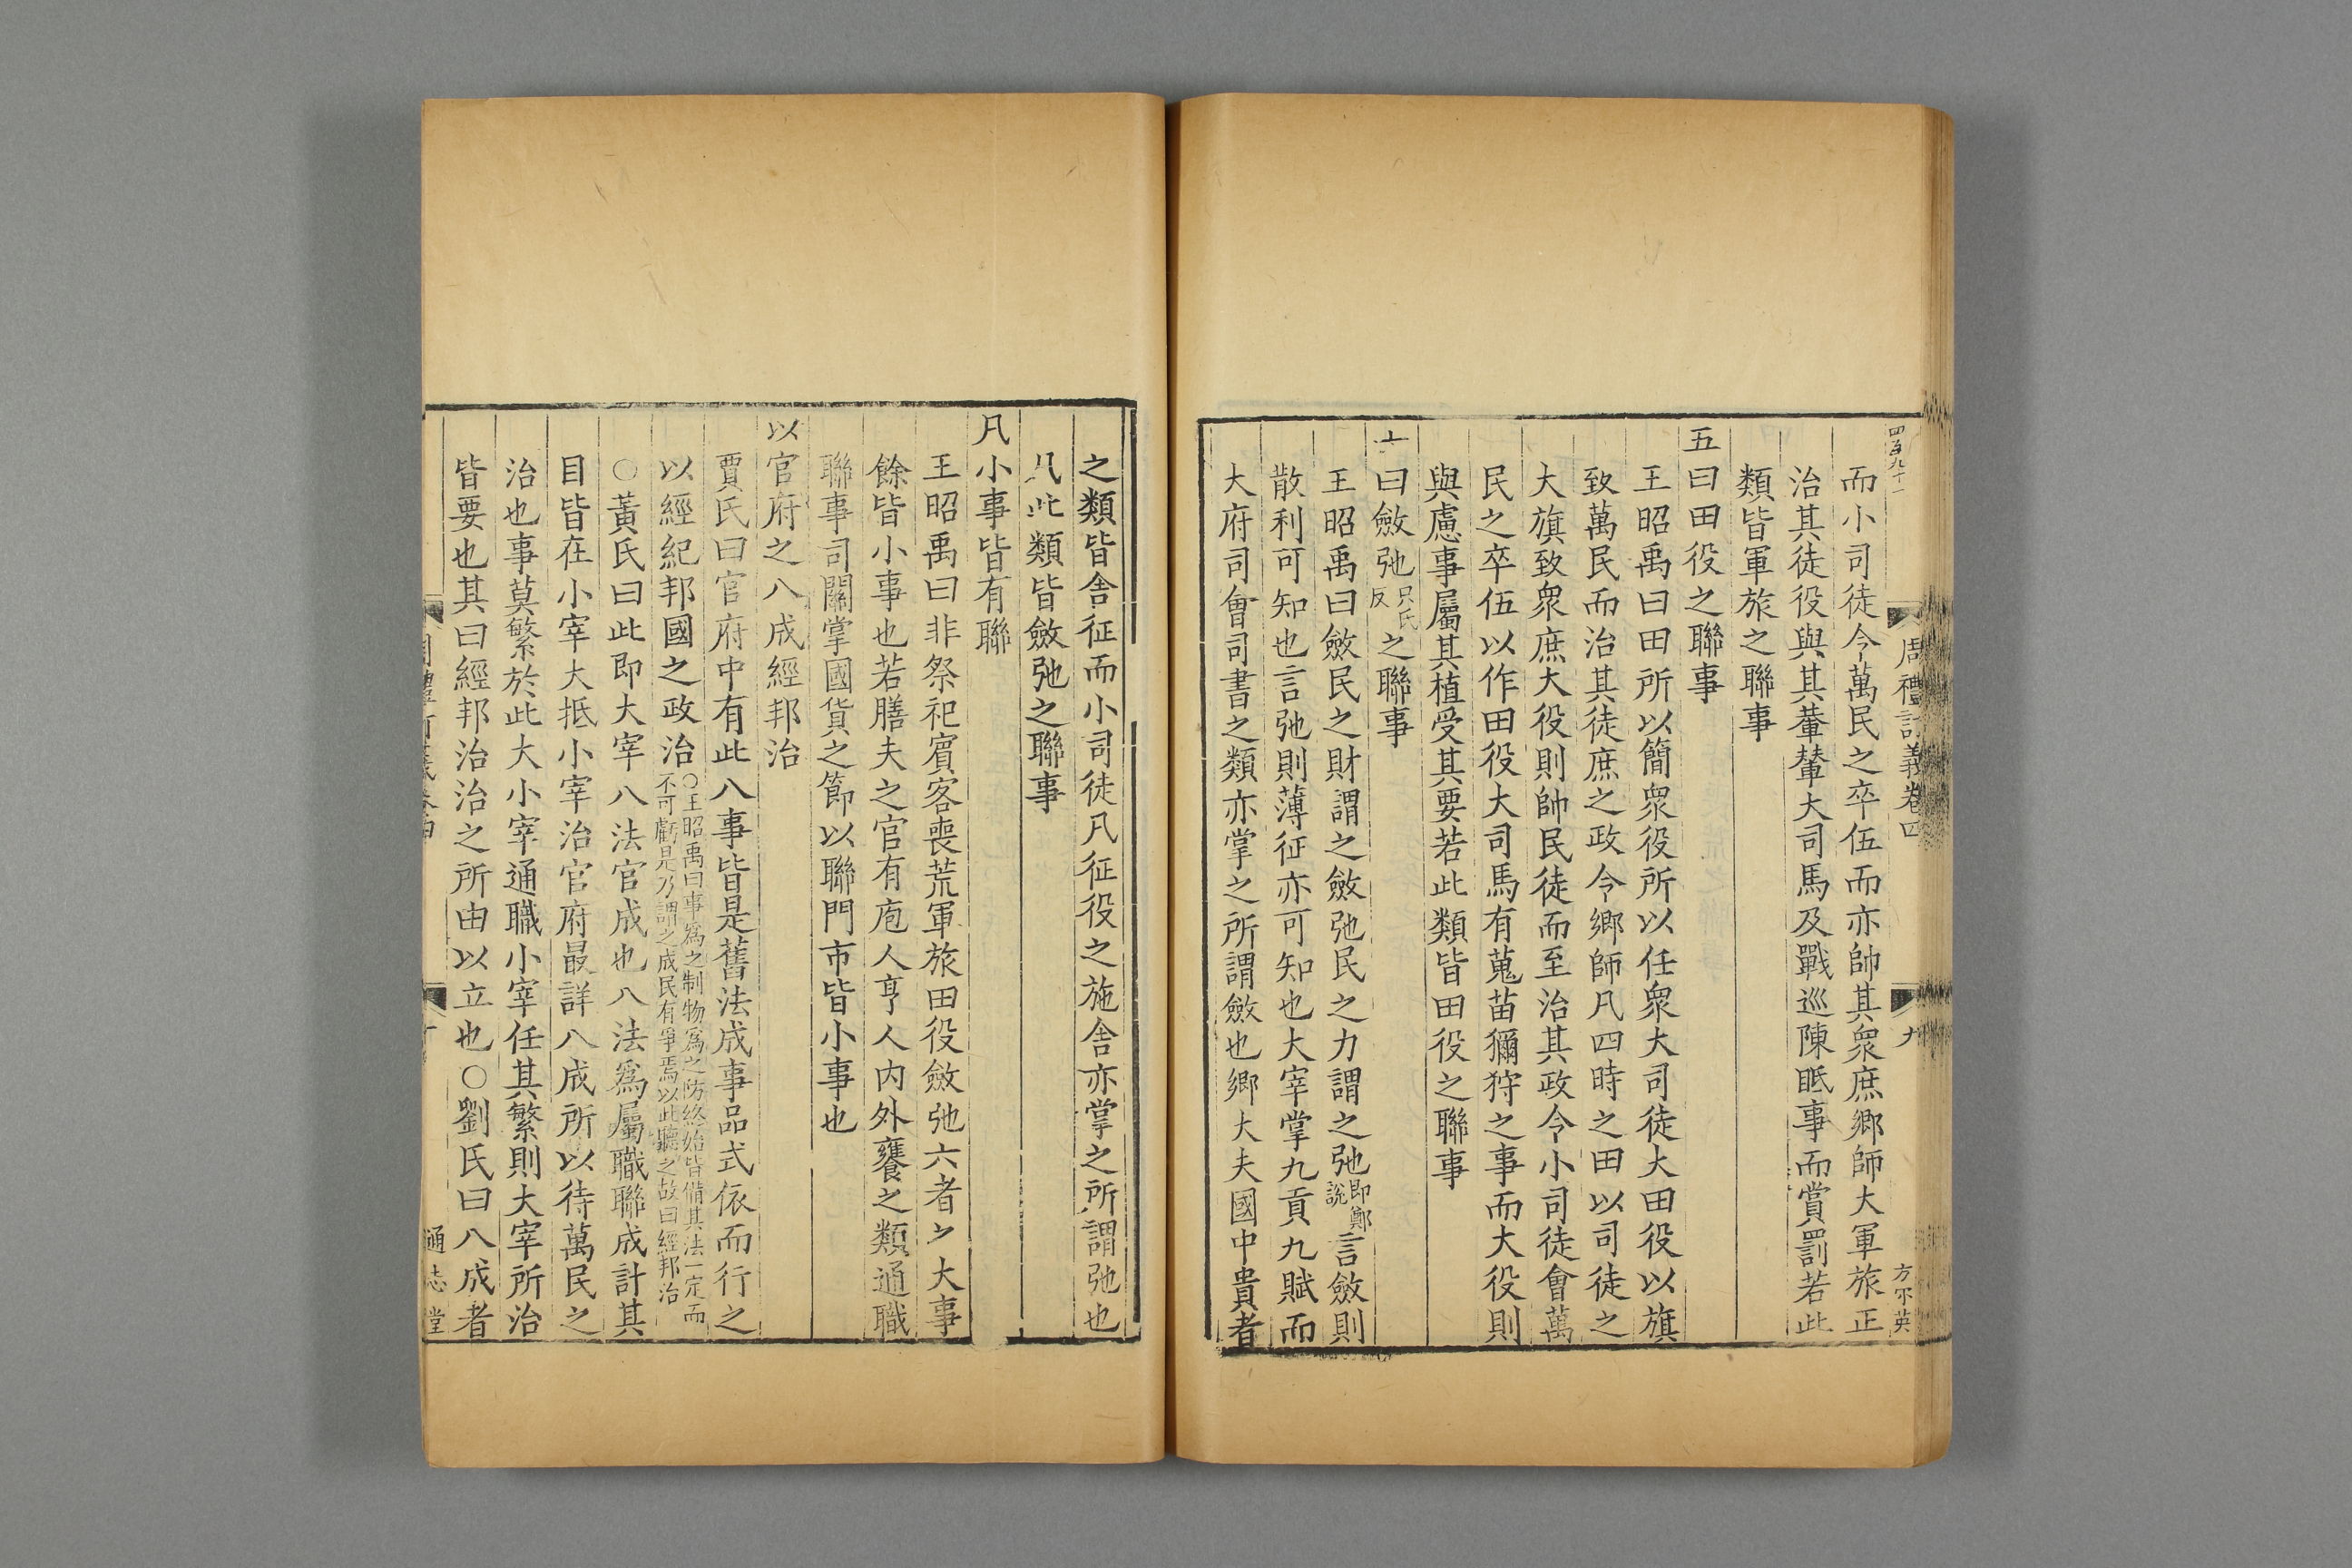 四百九十一
周禮訂義卷四
九
方不英
而小司徒令萬民之卒伍而亦帥其衆庶鄉師大軍旅正
治其徒役與其輂輦大司馬及戰巡陳眡事而賞罰若此
類皆軍旅之聯事
五曰田役之聯事
王昭禹曰田所以簡衆役所以任衆大司徒大田役以旗
致萬民而治其徒庶之政令鄉師凡四時之田以司徒之
大旗致衆庶大役則帥民徒而至治其政令小司徒會萬
民之卒伍以作田役大司馬有蒐苗獮狩之事而大役則
與慮事屬其植受其要若此類皆田役之聯事
曰斂弛只氏反之聯事
王昭禹曰斂民之財謂之斂弛民之力謂之弛即鄭說言斂則
散利可知也言弛則薄征亦可知也大宰掌九貢九賦而
大府司會司書之類亦掌之所謂斂也鄉大夫國中貴者
之類皆舍征而小司徒凡征役之施舍亦掌之所謂弛也
凡此類皆斂弛之聯事
凡小事皆有聯
王昭禹曰非祭祀賓客喪荒軍旅田役斂弛六者之大事
餘皆小事也若膳夫之官有庖人亨人內外饔之類通職
聯事司關掌國貨之節以聯門市皆小事也
以官府之八成經邦治
賈氏曰官府中有此八事皆是舊法成事品式依而行之
以經紀邦國之政治○王昭禹曰事爲之制物爲之防終始皆備其法一定而不可虧是乃謂之成民有爭焉以此聽之故曰經邦治
○黃氏曰此即大宰八法官成也八法爲屬職聯成計其
目皆在小宰大抵小宰治官府最詳八成所以待萬民之
治也事莫繁於此大小宰通職小宰任其繁則大宰所治
皆要也其曰經邦治治之所由以立也○劉氏曰八成者
十
通志堂